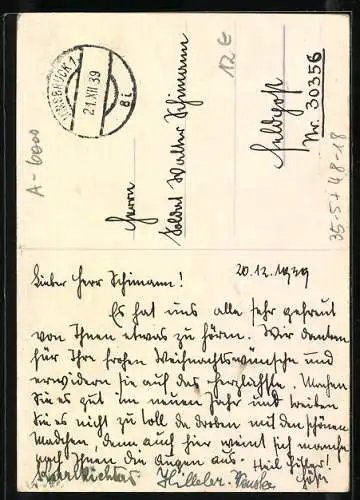 INNSBRUCK 1
21.XII 39
8 i
A-6000
12 €
Herrn
Soldat Walter Schimann
Feldpost
Nr. 30356
35-5+48-18
Lieber Herr Schimann! 20.12.1939
Es hat uns alle sehr gefreut
von Ihnen etwas zu hören. Wir danken
für Ihre frohen Weihnachtswünsche und
erwidern sie auf das Herzlichste. Machen
Sie es gut im neuen Jahr und treiben
Sie es nicht zu toll da droben mit den schönen
Mädchen, denn auch hier weint sich manche
nach Ihnen die Augen aus. Heil Hitler!